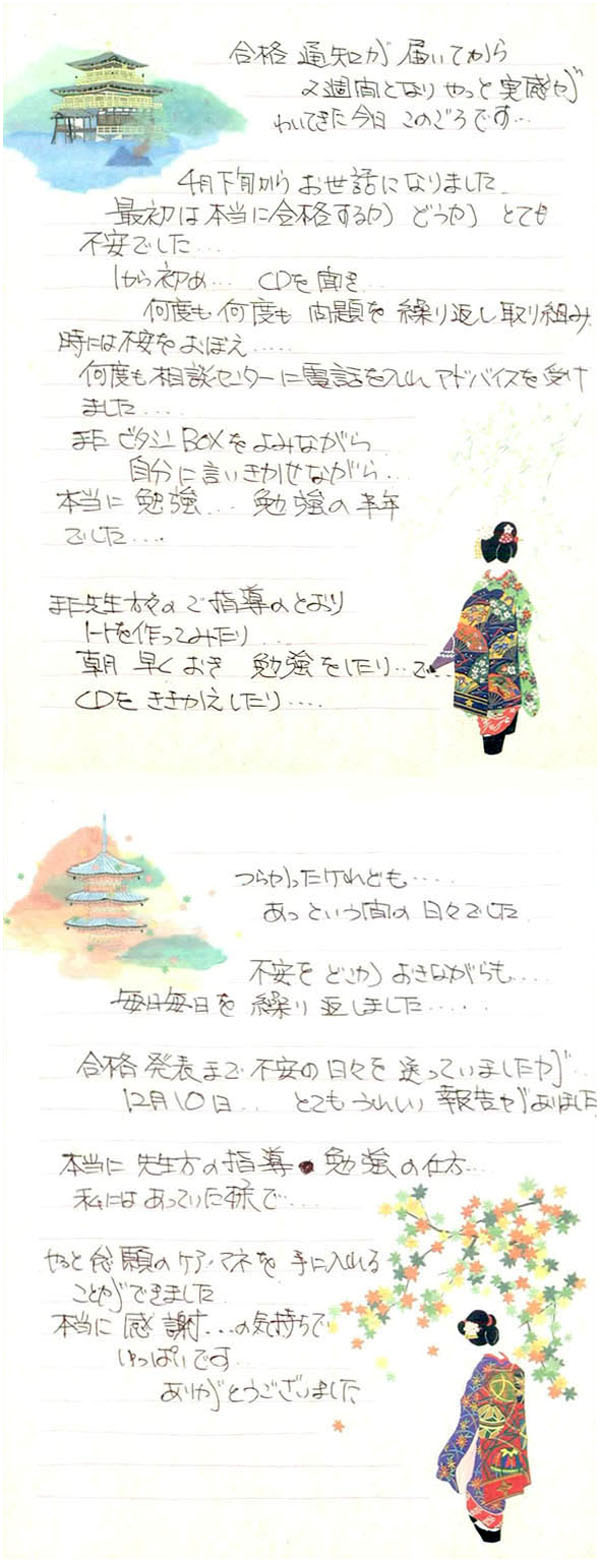 合格通知が届いてから
2週間となりやっと実感が
わいてきた今日このごろです…
4月下旬からお世話になりました
最初は本当に合格するか どうか とても
不安でした…
1から初め… CDを聞き…
何度も何度も問題を繰り返し取り組み
時には不安をおぼえ.....
何度も相談センターに電話を入れアドバイスを受け
ました....
また ビタミンBOXをよみながら
自分に言いきかせながら…
本当に勉強... 勉強の半年
でした....
また先生方々のご指導のとおり
ノートを作ってみたり...
朝早くおき 勉強をしたり..で..
CDをききかえしたり....
つらかったけれども.....
あっという間の日々でした
不安をどこかおきながらも....
毎日毎日を繰り返しました.....
合格発表まで不安の日々を送っていましたが..
12月10日.. とてもうれしい報告がありました
本当に先生方の指導・勉強の仕方...
私にはあっていた様で....
やっと念願のケアマネを手に入れる
ことができました
本当に感謝...の気持ちで
いっぱいです...
ありがとうございました